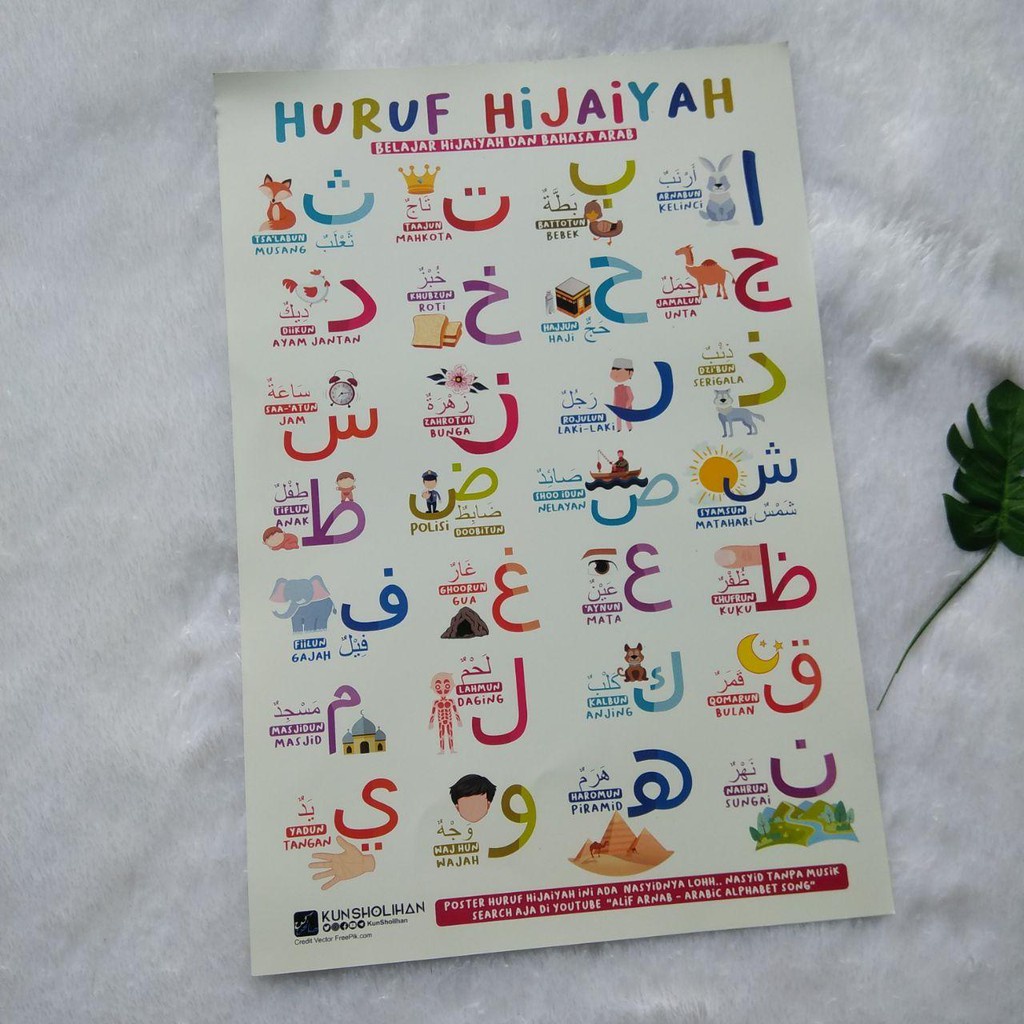 HURUF HiJAiYAH
BELAJAR HIJAIYAH DAN BAHASA ARAB
ا
أَرْنَبٌ
ARNABUN
KELINCI
ب
بَطَّةٌ
BATTOTUN
BEBEK
ت
تَاجٌ
TAAJUN
MAHKOTA
ث
TSA'LABUN
MUSANG
ثَعْلَبٌ
ج
جَمَلٌ
JAMALUN
UNTA
ح
HAJJUN
HAJI
حَجٌّ
خ
خُبْزٌ
KHUBZUN
ROTI
د
دِيكٌ
DIIKUN
AYAM JANTAN
ذ
ذِئْبٌ
DZI'BUN
SERIGALA
ر
رَجُلٌ
ROJULUN
LAKI-LAKI
ز
زَهْرَةٌ
ZAHROTUN
BUNGA
س
سَاعَةٌ
SAA-'ATUN
JAM
ش
SYAMSUN
MATAHARI
شَمْسٌ
ص
صَائِدٌ
SHOO IDUN
NELAYAN
ض
POLISI
ضَابِطٌ
DOOBITUN
ط
طِفْلٌ
TIFLUN
ANAK
ظ
ظُفْرٌ
ZHUFRUN
KUKU
ع
عَيْنٌ
'AYNUN
MATA
غ
غَارٌ
GHOORUN
GUA
ف
FIILUN
GAJAH
فِيْلٌ
ق
قَمَرٌ
QOMARUN
BULAN
ك
كَلْبٌ
KALBUN
ANJING
ل
لَحْمٌ
LAHMUN
DAGING
م
مَسْجِدٌ
MASJIDUN
MASJID
ن
نَهْرٌ
NAHRUN
SUNGAI
ه
هَرَمٌ
HAROMUN
PIRAMID
و
وَجْهٌ
WAJHUN
WAJAH
ي
يَدٌ
YADUN
TANGAN
KUNSHOLIHAN
KunSholihan
Credit Vector FreePik.com
POSTER HURUF HIJAIYAH INI ADA NASYIDNYA LOHH.. NASYID TANPA MUSIK
SEARCH AJA DI YOUTUBE "ALIF ARNAB - ARABIC ALPHABET SONG"